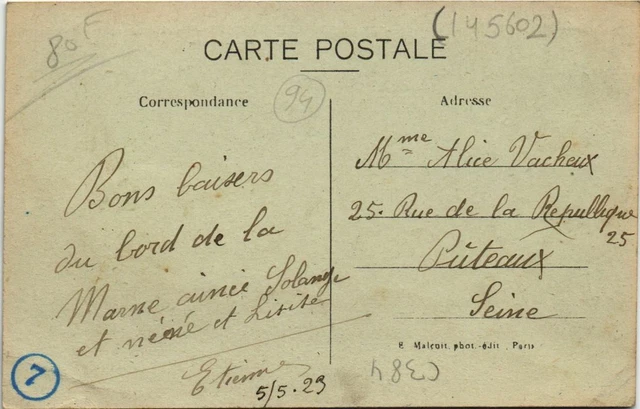 80F
(145602)
CARTE POSTALE
94
Correspondance
Adresse
Bons baisers
du bord de la
Marne aimée Solange
et néné et Lisite
Etienne
5/5.23
Mme Alice Vachaux
25. Rue de la Republique
25
Puteaux
Seine
E. Malcuit phot.-édit. Paris
7